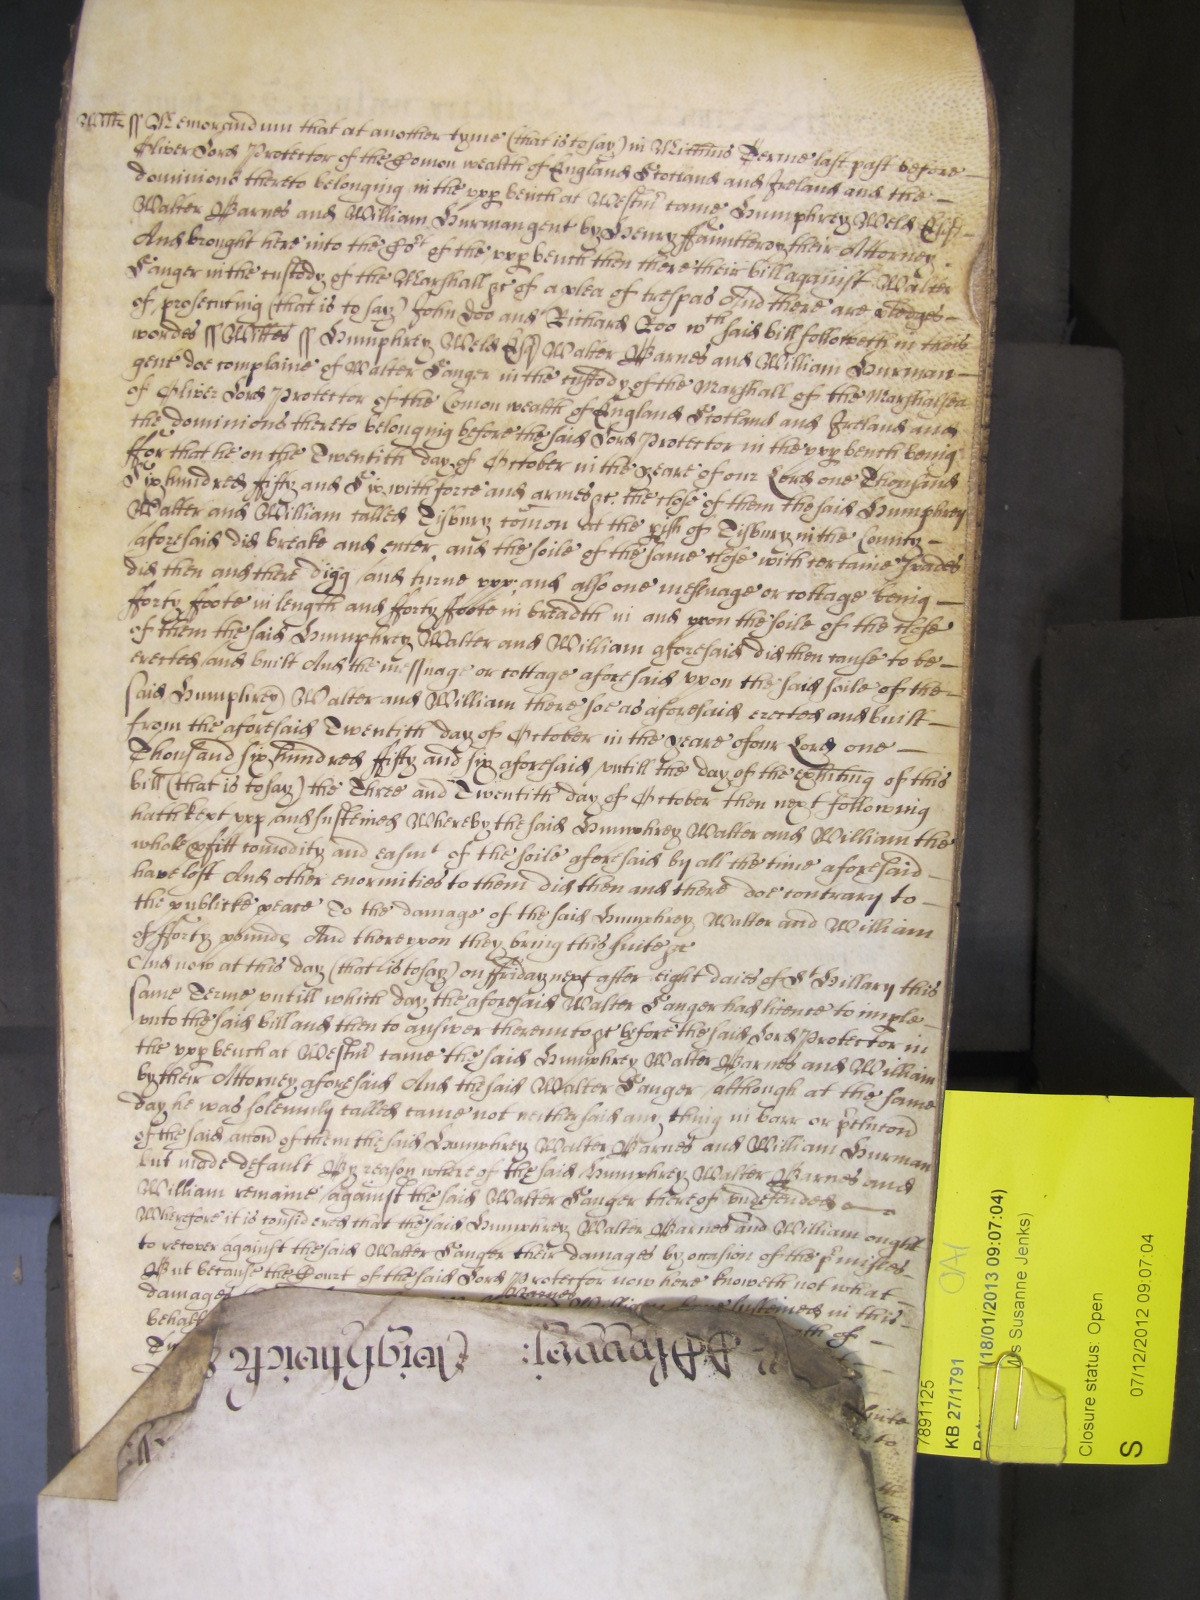 Wiltes ss Memorandum that at another tyme (that is to say) in Mich'mis Terme last past before
Oliver Lord Protector of the Comon wealth of England Scotland and Ireland and the
dominions thereto belonging in the upp bench at Westm' came Humphrey Weld Esq'
Walter Barnes and William Hurman gent by Henry ffauntleroy their Attorney
And brought here into the Co't of the upp bench then there their bill against Walter
Sanger in the custody of the Marshall &c of a plea of trespas And there are pledges
of prosecuting (that is to say) John Doo and Richard Roo wth said bill followeth in theis
wordes ss Wiltes ss Humphrey Weld Esq Walter Barnes and William Hurman
gent doe complaine of Walter Sanger in the custody of the Marshall of the Marshalsea
of Oliver Lord Protector of the Comon wealth of England Scotland and Ireland and
the dominions thereto belonging before the said Lord Protector in the upp bench being
ffor that he on the Twentith day of October in the yeare of our Lord one Thousand
Six hundred fifty and Six with force and armes &c the close of them the said Humphrey
Walter and William called Tisbury comon at the pish of Tisbury in the County
aforesaid did breake and enter and the soile of the same close with certaine spades
did then and there digg and turne upp and also one messuage or cottage being
fforty ffoote in length and fforty ffoote in breadth in and upon the soile of the close
of them the said Humphrey Walter and William aforesaid did then cause to be
erected and built And the messuage or cottage aforesaid upon the said soile of the
said Humphrey Walter and William there soe as aforesaid erected and built
from the aforesaid Twentith day of October in the yeare of our Lord one
Thousand six hundred ffifty and six aforesaid untill the day of the exhiting of this
bill (that is to say) the Three and Twentith day of October then next following
hath kept upp and susteined Whereby the said Humphrey Walter and William the
whole pfitt comodity and easmt of the soile aforesaid by all the time aforesaid
have lost And other enormities to them did then and there doe contrary to
the publicke peace To the damage of the said Humphrey Walter and William
of fforty pounds And thereupon they bring this suite &c
And now at this day (that is to say) on ffriday next after eight daies of St Hillary this
same Terme untill which day the aforesaid Walter Sanger had licence to imple
unto the said bill and then to answer thereunto &c before the said Lord Protector in
the upp bench at Westm' came the said Humphrey Walter Barnes and William
by their Attorney aforesaid And the said Walter Sanger although at the same
day he was solemnly called came not neither said any thing in barr or p'clucon
of the said accon of them the said Humphrey Walter Barnes and William Hurman
but made default By reason whereof the said Humphrey Walter Barnes and
William remaine against the said Walter Sanger thereof undefended
Wherefore it is considered that the said Humphrey Walter Barnes and William ought
to recover against the said Walter Sanger their damages by occasion of the p'misses
But because the Court of the said Lord Protector now here knoweth not what
damages Barnes
William have susteined in this
behalf
of
suite
to
7891125
KB 27/1791
(18/01/2013 09:07:04)
Ms Susanne Jenks)
Closure status: Open
S 07/12/2012 09:07:04